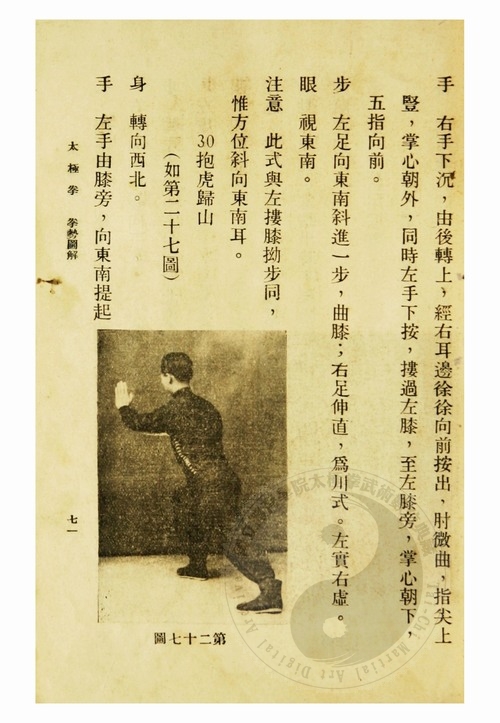 手　右手下沉，由後轉上，經右耳邊徐徐向前按出，肘微曲，指尖上
豎，掌心朝外，同時左手下按，摟過左膝，至左膝旁，掌心朝下，
五指向前。
步　左足向東南斜進一步，曲膝；右足伸直，爲川式。左實右虛。
眼　視東南。
注意　此式與左摟膝拗步同，
惟方位斜向東南耳。
30抱虎歸山
（如第二十七圖）
身　轉向西北。
手　左手由膝旁，向東南提起
第二十七圖
太極拳　拳勢圖解
七一
Tai-Chi Martial Art Digital